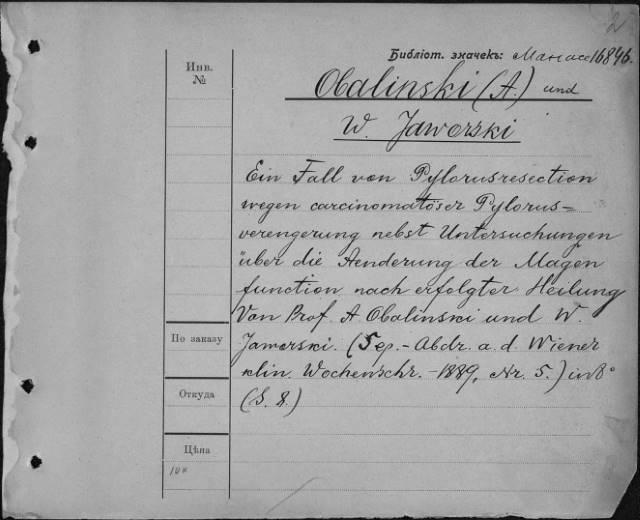 2
Библіот. значекъ: Манассе 16846.
Инв.
№
Obalinski (A.) und
W. Jaworski
Ein Fall von Pylorusresection
wegen carcinomatöser Pylorus=
verengerung nebst Untersuchungen
über die Aenderung der Magen
function nach erfolgter Heilung
Von Prof. A Obalinski und W.
По заказу
Jaworski. (Sep.-Abdr. a. d. Wiener
klin. Wochenschr. - 1889, Nr. 5.) in 8°
Откуда
(S. 8.)
Цѣна